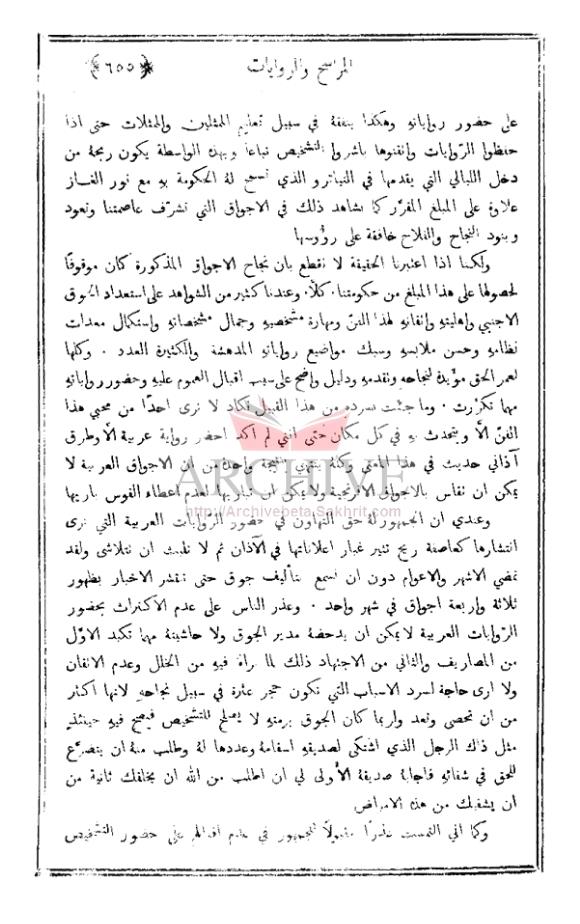 المراسح والروايات
﴿٦٥٥﴾
على حضور رواياتهِ وهكذا ينفقهُ في سبيل تعليم الممثلين والممثلات حتى اذا
حفظوا الرّوايات واتقنوها باشروا التشخيص تباعاً وبهذه الواسطة يكون ربحهُ من
دخل الليالي التي يقدمها في التياترو الذي تسمح لهُ الحكومة بهِ مع نور الغاز
علاوة على المبلغ المقرَّر كما نشاهد ذلك في الاجواق التي تشرّف عاصمتنا وتعود
وبنود النجاح والفلاح خافقة على رؤوسها
ولكننا اذا اعتبرنا الحقيقة لا نقطع بان نجاح الاجواق المذكورة كان موقوفًا
لحصولها على هذا المبلغ من حكومتنا. كلاَّ. وعندنا كثير من الشواهد على استعداد الجوق
الاجنبي واهليتهِ واتقانهِ لهذا الفنّ ومهارة مشخصيهِ وجمال مشخصاتهِ واستكمال معدات
نظامهِ وحسن ملابسهِ وسبك مواضيع رواياتهِ المدهشة والكثيرة العدد . وكلها
لعمر الحق مؤيدة لنجاحهِ وتقدمهِ ودليل واضح على سبب اقبال العموم عليهِ وحضور رواياتهِ
مهما تكرّرت . وما جئت بسرده من هذا القبيل فكاد لا نرى احدًا من محبي هذا
الفنّ الاَّ ويتحدث بهِ في كل مكان حتى انني لم اكد احضر رواية عربية الاَّ وطرق
آذاني حديث في هذا المعنى وكلهُ ينتهي بنتيجة واحدة من ان الاجواق العربية لا
يمكن ان تقاس بالاجواق الافرنجية ولا يمكن ان تباريها لعدم اعطاء القوس باريها
ARCHIVE
http://Archivebeta.Sakhrit.com
وعندي ان الجمهور لهُ حق التهاون في حضور الرّوايات العربية التي نرى
انتشارها كعاصفة ريح تثير غبار اعلاناتها في الآذان ثم لا تلبث ان تتلاشى ولقد
تمضي الاشهر والاعوام دون ان نسمع بتأليف جوق حتى تنتشر الاخبار بظهور
ثلاثة واربعة اجواق في شهر واحد . وعذر الناس على عدم الاكتراث بحضور
الرّوايات العربية لا يمكن ان يدحضهُ مدير الجوق ولا حاشيتهُ مهما تكبد الاوّل
من المصاريف والثاني من الاجتهاد ذلك لما نراهُ فيهِ من الخلل وعدم الاتقان
ولا ارى حاجة لسرد الاسباب التي تكون حجر عثرة في سبيل نجاحهِ لانها اكثر
من ان تحصى وتعد ولربما كان الجوق برمتهِ لا يصلح للتشخيص فيصح فيهِ حينئذٍ
مثل ذاك الرجل الذي اشتكى لصديقهِ اسقامهُ وعددها لهُ وطلب منهُ ان يتضرَّع
للحق في شفائهِ فاجابهُ صديقهُ الأولى لي ان اطلب من الله ان يخلقك ثانية من
ان يشفيك من هذه الامراض
وكما اني التمست عذرًا مقبولاً للجمهور في عدم اقبالهم على حضور التشخيص